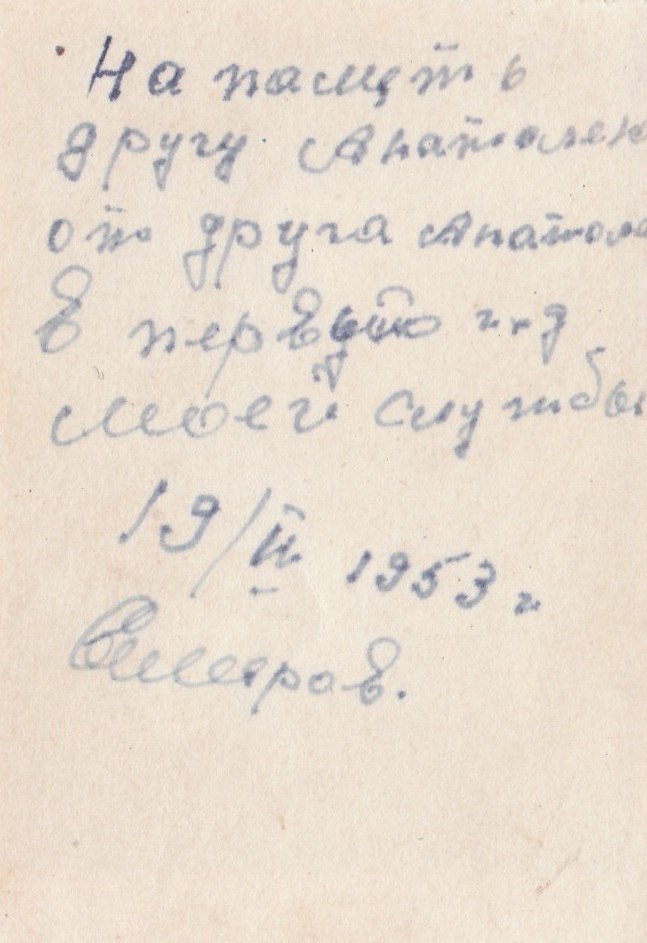 На память
другу Анатолею
от друга Анатоле
В первый год
моей службы
19/II 1953 г